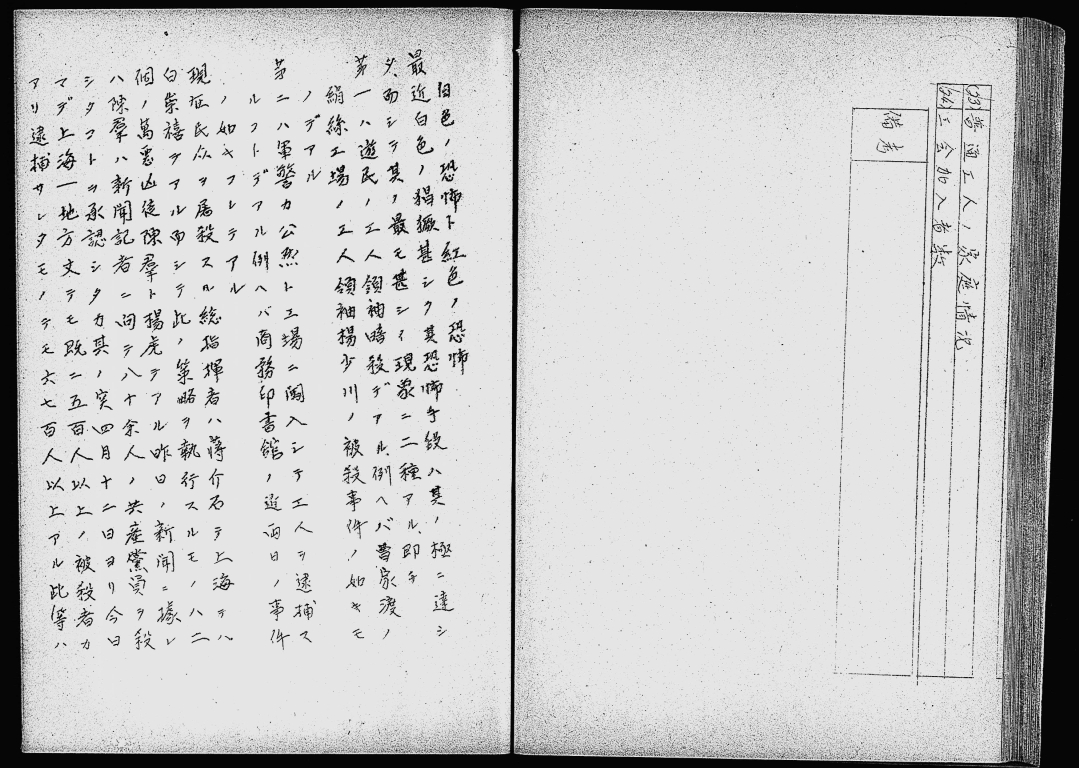 (33)普通工人ノ家庭情況
(34)工会加入者数
備考
白色ノ恐怖ト紅色ノ恐怖
最近白色ノ猖獗甚シク其恐怖手段ハ其ノ極ニ達シ
タ、而シテ其ノ最モ甚シイ現象ニ二種アル、即チ
第一ハ遊民ノ工人領袖暗殺デアル、例ヘバ曹家渡ノ
絹絲工場ノ工人領袖楊少川ノ被殺事件ノ如キモ
ノデアル
第二ハ軍警カ公然ト工場ニ闖入シテ工人ヲ逮捕ス
ルフトデアル例ヘバ商務印書館ノ近両日ノ事件
ノ如キフレテアル
現在民众ヲ屠殺スル総指揮者ハ蒋介石テ上海テハ
白崇禧ヲアル而シテ此ノ策略ヲ執行スルモノハ二
個ノ萬悪凶徒陳羣ト楊虎テアル昨日ノ新聞ニ據レ
ハ陳羣ハ新聞記者ニ向テ八十余人ノ共産黨員ヲ殺
シタフトヲ承認シタカ其ノ実四月十二日ヨリ今日
マデ上海一地方丈テモ既ニ五百人以上ノ被殺者カ
アリ逮捕サレタモノテモ六七百人以上アル此等ハ